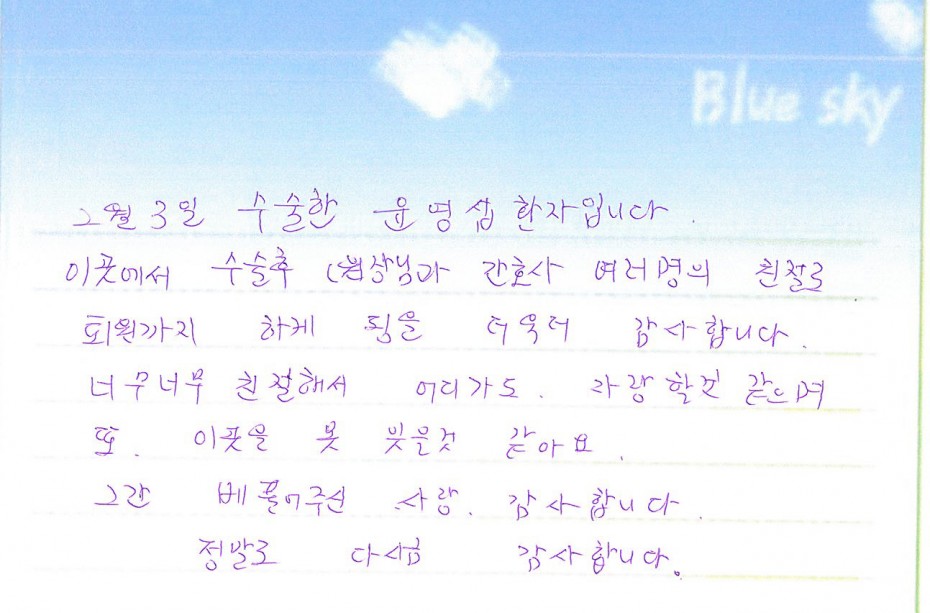 Blue sky
2월 3일 수술한 윤영섭 환자입니다.
이곳에서 수술후 간호사 여러명의 친절로
퇴원까지 하게 됨을 더욱더 감사합니다.
너무너무 친절해서 어디가도. 자랑할것 같으며
또. 이곳을 못 잊을것 같아요.
그간 베풀어주신 사랑. 감사합니다.
정말로 다시금 감사합니다.